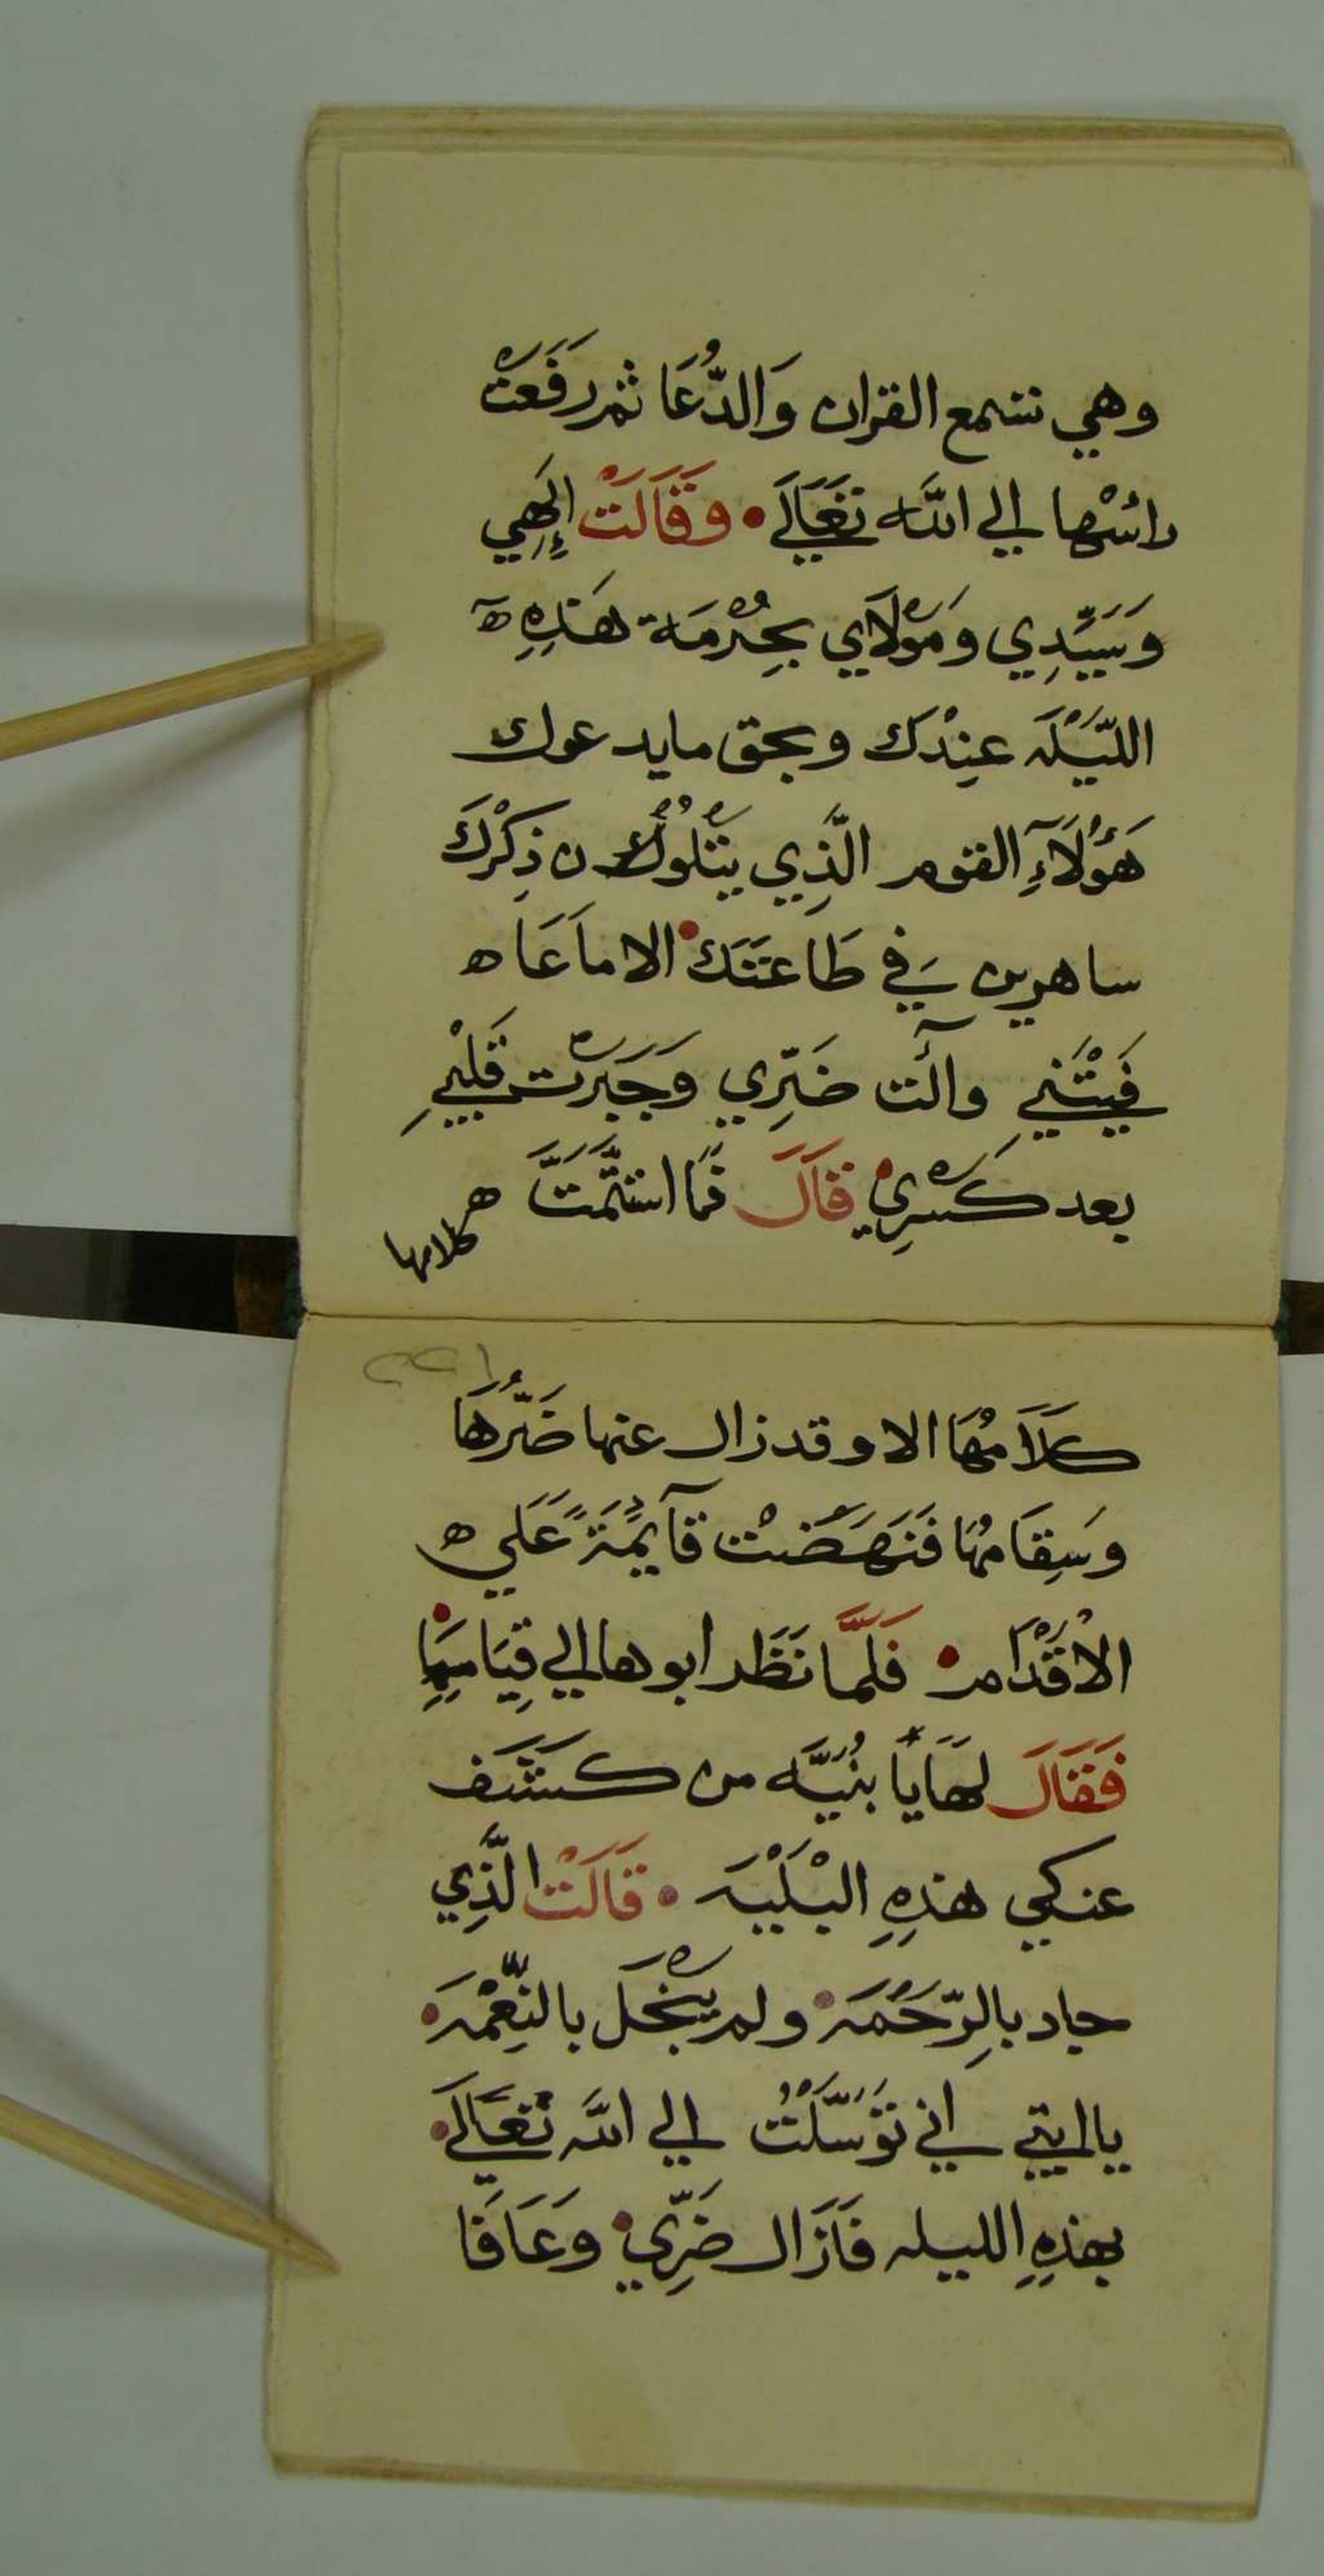 وهي تسمع القران وَالدُّعَا ثم رَفَعَتْ
رائسْها الي اللَّه تَعَالَي • وَقَالَتْ إِلَهِي
وَسَيِّدِي وَمَوْلَاي بِحُرْمَة هَذِهِ ه
اللَّيْلَه عِنِدْكَ وبحق مايدعوك
هَؤُلَآءِ القوم الَّذِي يَتْلُوْن ذِكْرَكَ
ساهرين في طَاعَتَك • الا ماعَا ه
فَيْتَنِي وأَلت ضَرِّي وَجَبَرْت قَلْبِي
بعد كَسْرِي • قَالَ فمَا استتَمَّتَّ ه
كلامها
٢٤١
كَلَامُهَا الا وقد زال عنها ضَرُّهَا
وَسِقَامُهَا فَنَهَضَتْ قآيِمَةً عَلَي ه
الاقْدَام • فَلَمَّا نَظَر ابوها الي قِيَامِهَا •
فَقَالَ لهَا يَا بنُيَّه من كَشَف
عنكي هذِهِ البْلَيْيَه • قَالَتْ الَّذِي
جاد بالرِّحَمْه • ولم يَبْخَل بالنِّعْمَه •
يا ابتي اني تَوَسَّلْتُ الي اللَّه تَعَالَي •
بهذِهِ الليله فَازَال ضَرِّي • وَعَافَا